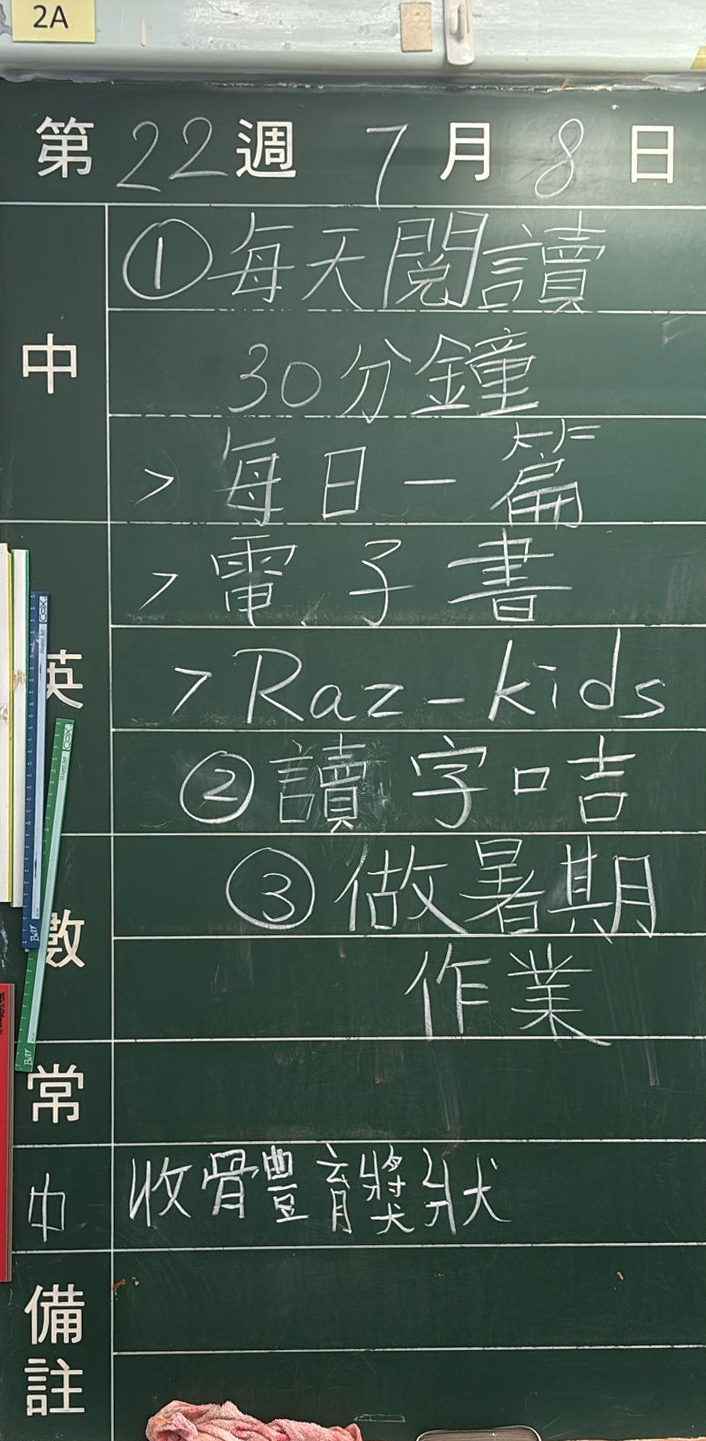 2A
第22週 7月8日
中
①每天閱讀
30分鐘
>每日一篇
>電子書
英
>Raz-kids
②讀字口吉
數
③做暑期
作業
常
巾 收體育獎狀
備
註